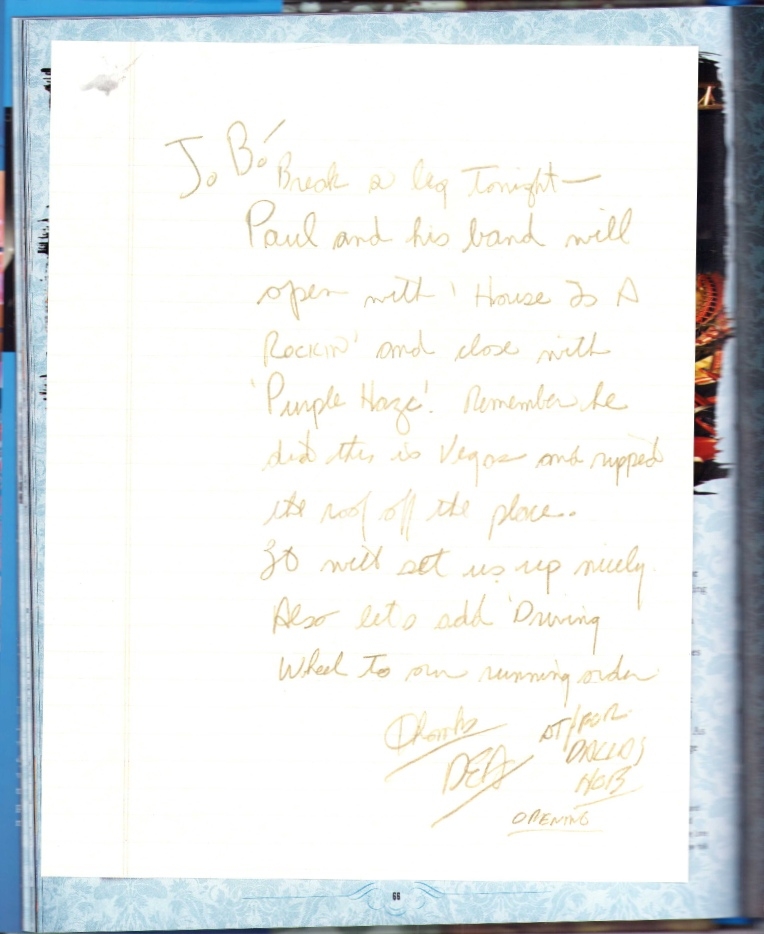 Jo Bo'
Break a leg Tonight—
Paul and his band will
open with 'House Is A
Rockin' and close with
'Purple Haze'. Remember he
did this is Vegas and ripped
the roof off the place.
It will set us up nicely
Also let's add 'Driving
Wheel To our running order
Thanks
DEA
DALLAS
HOB
OPENING
66